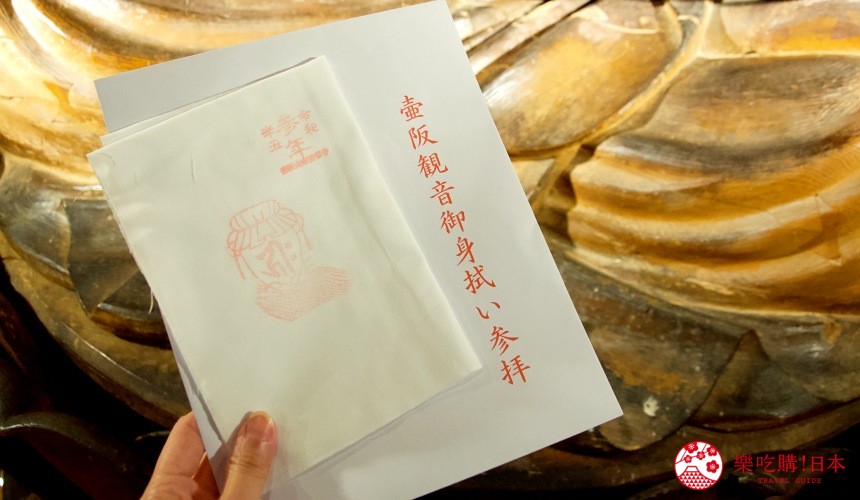 壺阪観音御身拭い参拝
令和
参年
樂吃購!日本
TRAVEL GUIDE